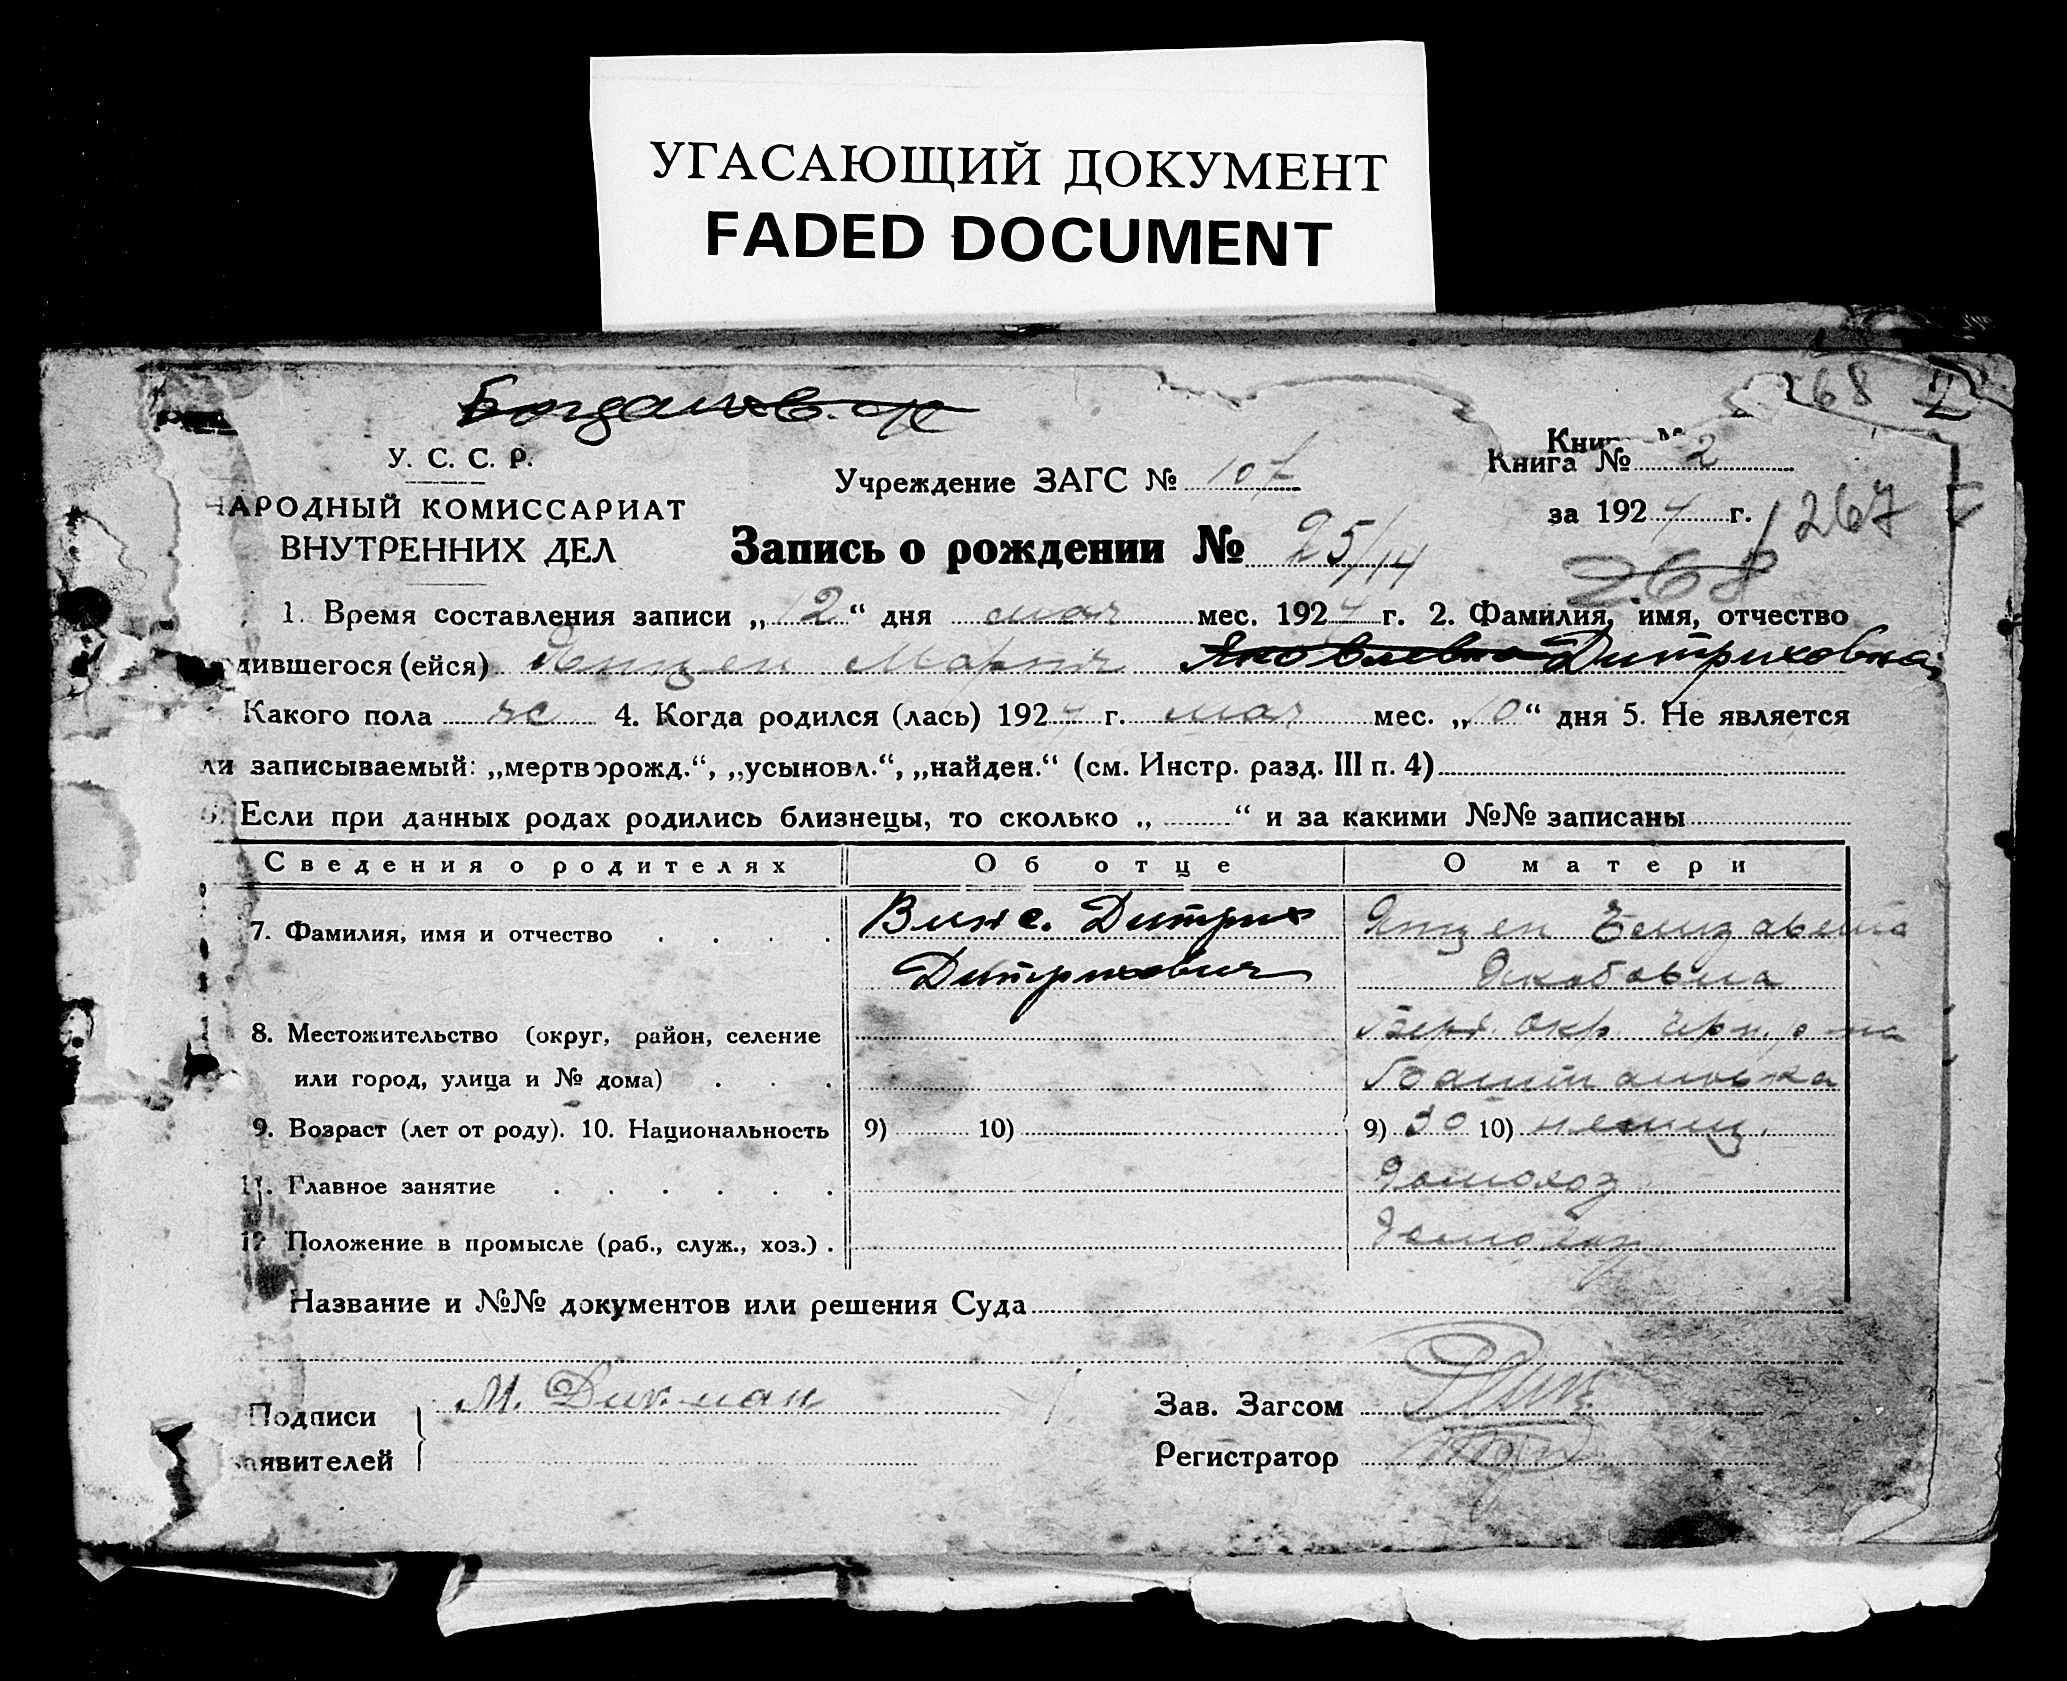 УГАСАЮЩИЙ ДОКУМЕНТ
FADED DOCUMENT
268
У. С. С. Р.
НАРОДНЫЙ КОМИССАРИАТ
ВНУТРЕННИХ ДЕЛ
Учреждение ЗАГС № 107
Книга № 2
за 1924 г.
267
268
Запись о рождении № 25/14
1. Время составления записи „12“ дня мая мес. 1924 г. 2. Фамилия, имя, отчество
дившегося (ейся) Янцен Мария Яковлевна Дитриховна
Какого пола ж 4. Когда родился (лась) 1924 г. мая мес. „10“ дня 5. Не является
ли записываемый: „мертворожд.“, „усыновл.“, „найден.“ (см. Инстр. разд. III п. 4)
6. Если при данных родах родились близнецы, то сколько „ “ и за какими №№ записаны
Сведения о родителях Об отце О матери
7. Фамилия, имя и отчество Винс. Дитрих Янцен Елизавета
Дитрихович Якобовна
8. Местожительство (округ, район, селение Окр.
или город, улица и № дома)
9. Возраст (лет от роду). 10. Национальность 9) 10) 9) 30 10) немец.
11. Главное занятие Домохоз
12 Положение в промысле (раб., служ., хоз.) Домохоз
Название и №№ документов или решения Суда
Подписи М. Дикман Зав. Загсом
заявителей Регистратор